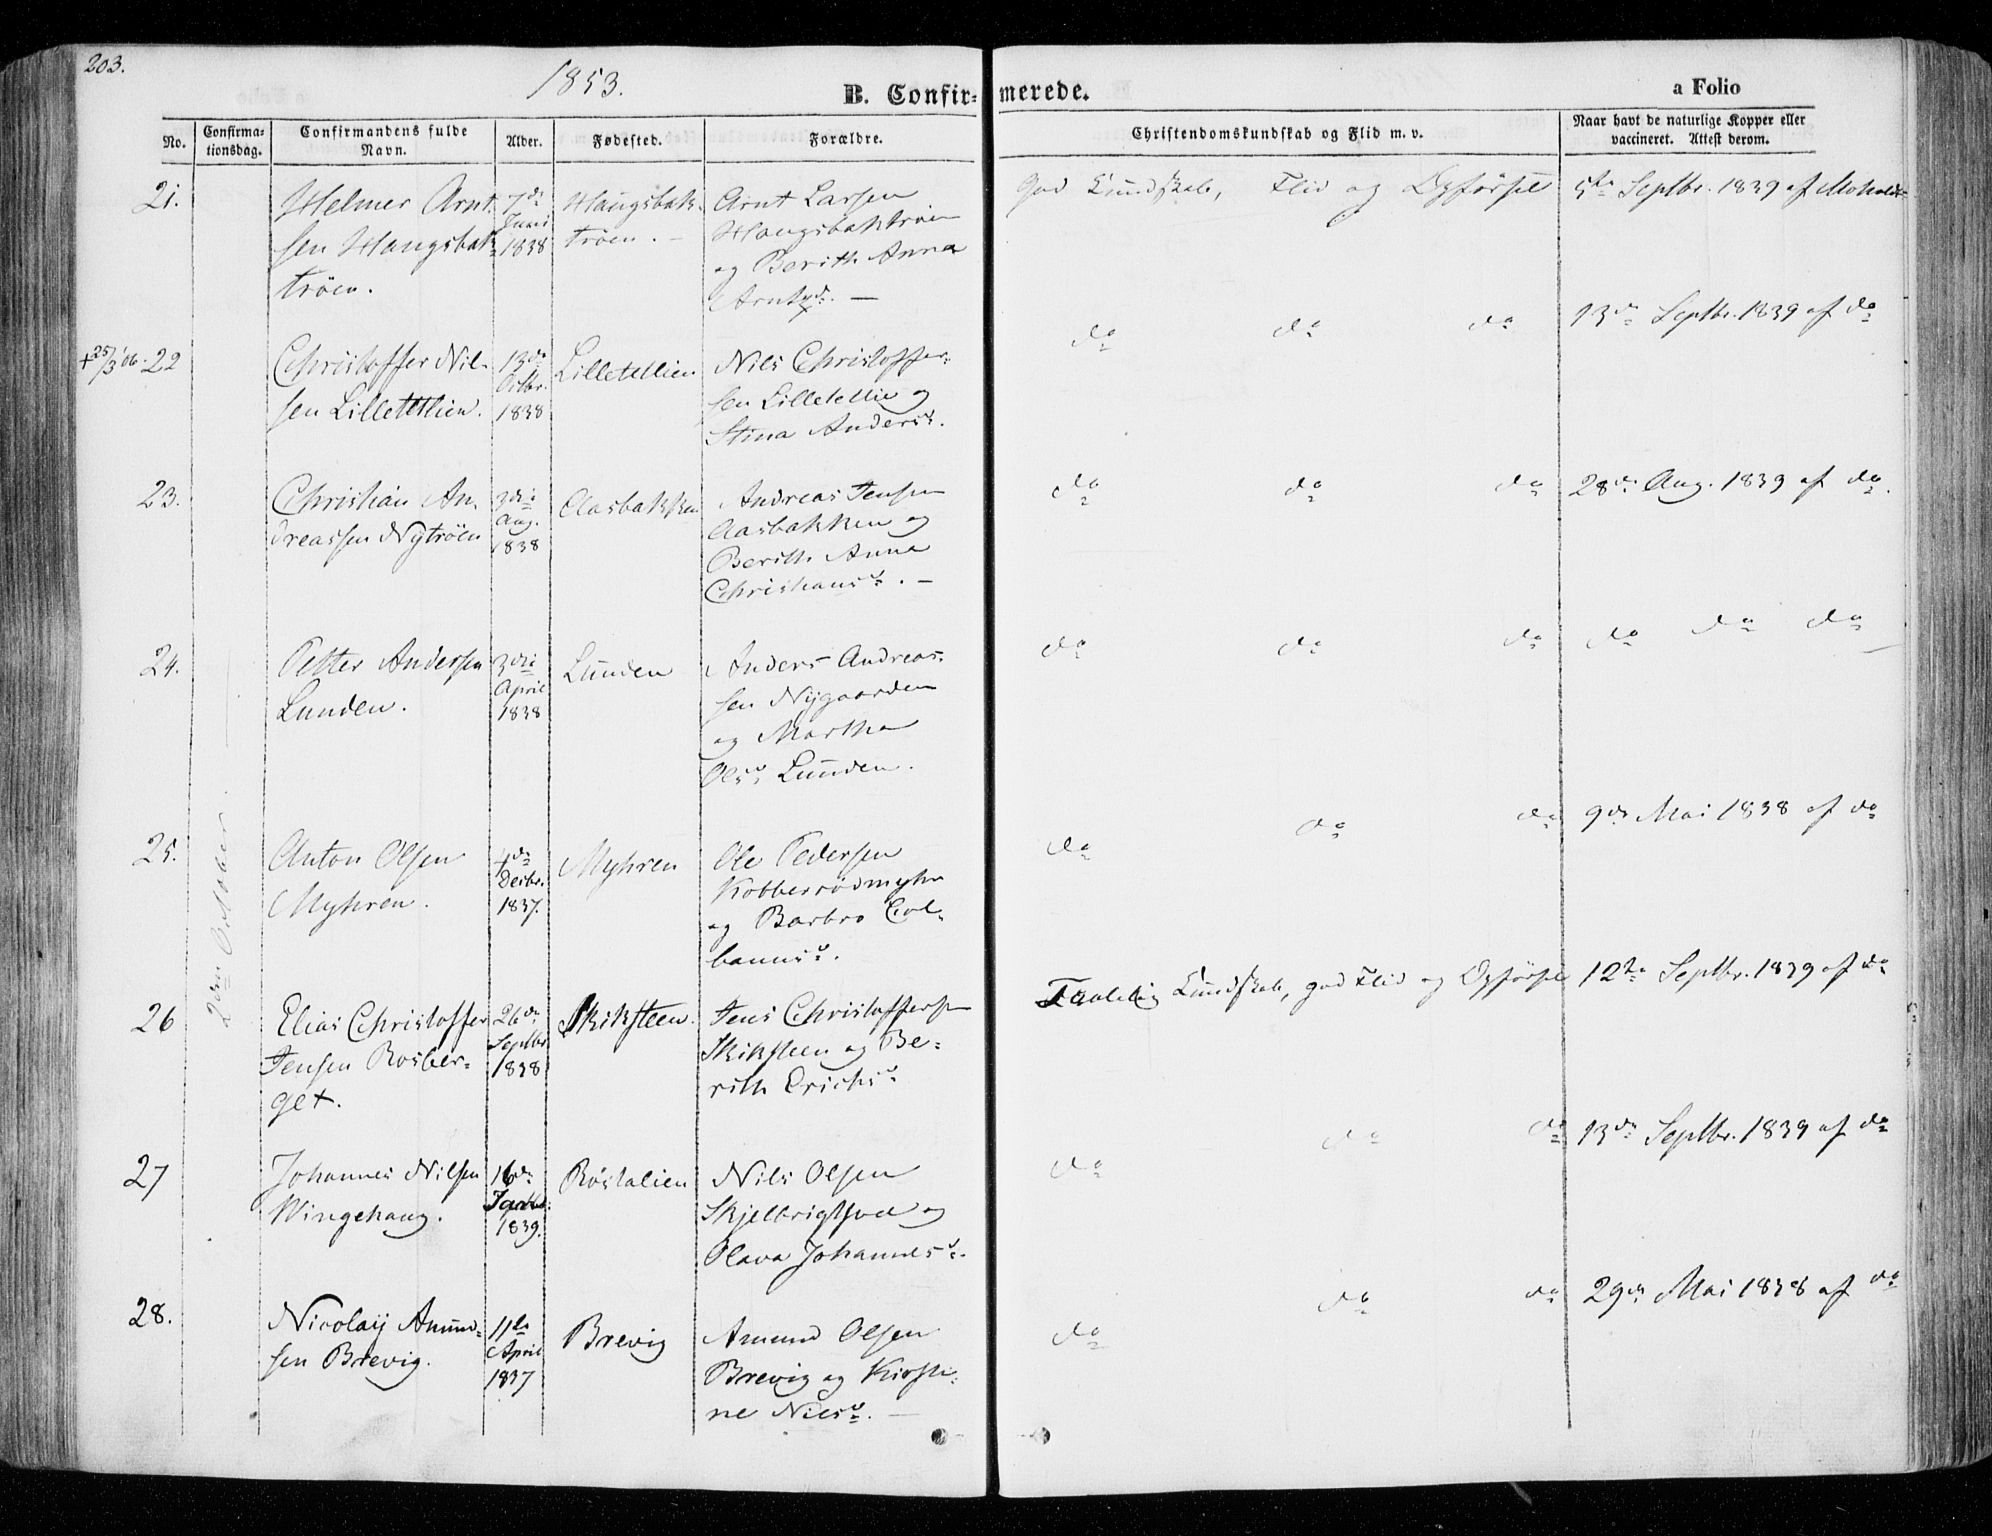 203.
1853.
B. Confirmerede.
a Folio
No.
Confirmationsdag.
Confirmandens fulde Navn.
Alder.
Fødested.
Forældre.
Christendomskundskab og Flid m. v.
Naar havt de naturlige Kopper eller
vaccineret. Attest derom.
2den October.
21.
Helmer Arnt
sen Haugsbak
tröen.
7de
Juni
1838
Haugsbak
tröen. -
Arnt Larsen
Haugsbaktröen
og Berith Anna
Arntsd. —
God Kundskab, Flid og Opförsel
5te Septbr. 1839 af
+25/3 '06. 22
Christoffer Nil-
sen Lilletetlien.
13de
Octbr.
1838
Lilletetlien
Nils Christoffer-
sen Lilletetlie og
Stina Andersd.
do do do
13de Septbr. 1839 af do
23.
Christian An-
dreassen Nytröen
3die
Aug.
1838
Aasbakken
Andreas Jensen
Aasbakken og
Berith Anna
Christiansd. -
do do do
28de Aug. 1839 af do.
24.
Petter Andersen
Lunden.
3die
April
1838
Lunden
Anders Andreas-
sen Nygaarden
og Martha
Olsd. Lunden.
do do do
do do do
25.
Anton Olsen
Myhren.
4de
Decbr.
1837.
Myhren
Ole Pedersen
Kobberrödmyhr
og Barbro Col-
banusd.
do do do
9de Mai 1838 af do
26
Elias Christoffer
Jensen Rosber-
get.
26de
Septbr
1838
Skiksteen.
Jens Christoffersen
Skiksteen og Be-
rith Erichsd.
Taalelig Kundskab, god Flid og Opförsel
12te Septbr. 1839 af do
27
Johannes Nilsen
Wingehaug.
16de
1839.
Röstalien
Nils Olsen
og
Olava Johannesd.
do do do
13de Septbr. 1839 af do
28.
Nicolaij Amund-
sen Brevig.
11te
April
1837
Brevig
Amund Olsen
Brevig og Kirsti-
ne Nilsd. —
do do do
29de Mai 1838 af do